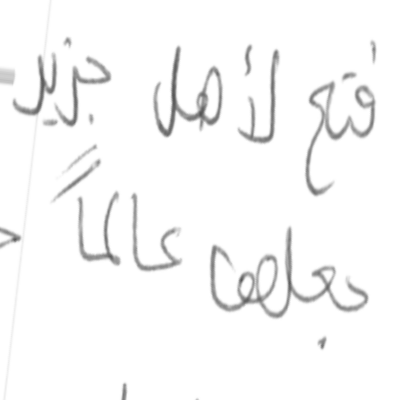 فتح لأهل جزير
جعلهما عالماً